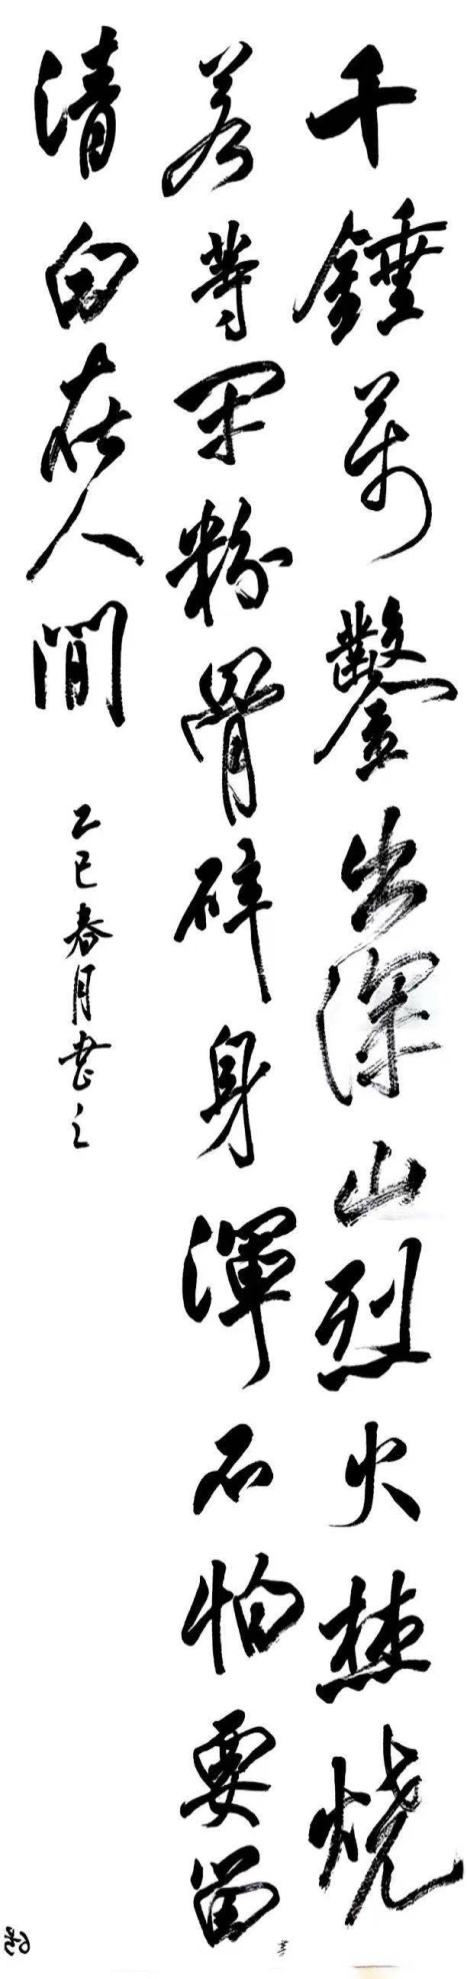 千錘萬鑿出深山烈火焚烧
若等闲粉骨碎身渾不怕要留
清白在人間
乙巳春月書之